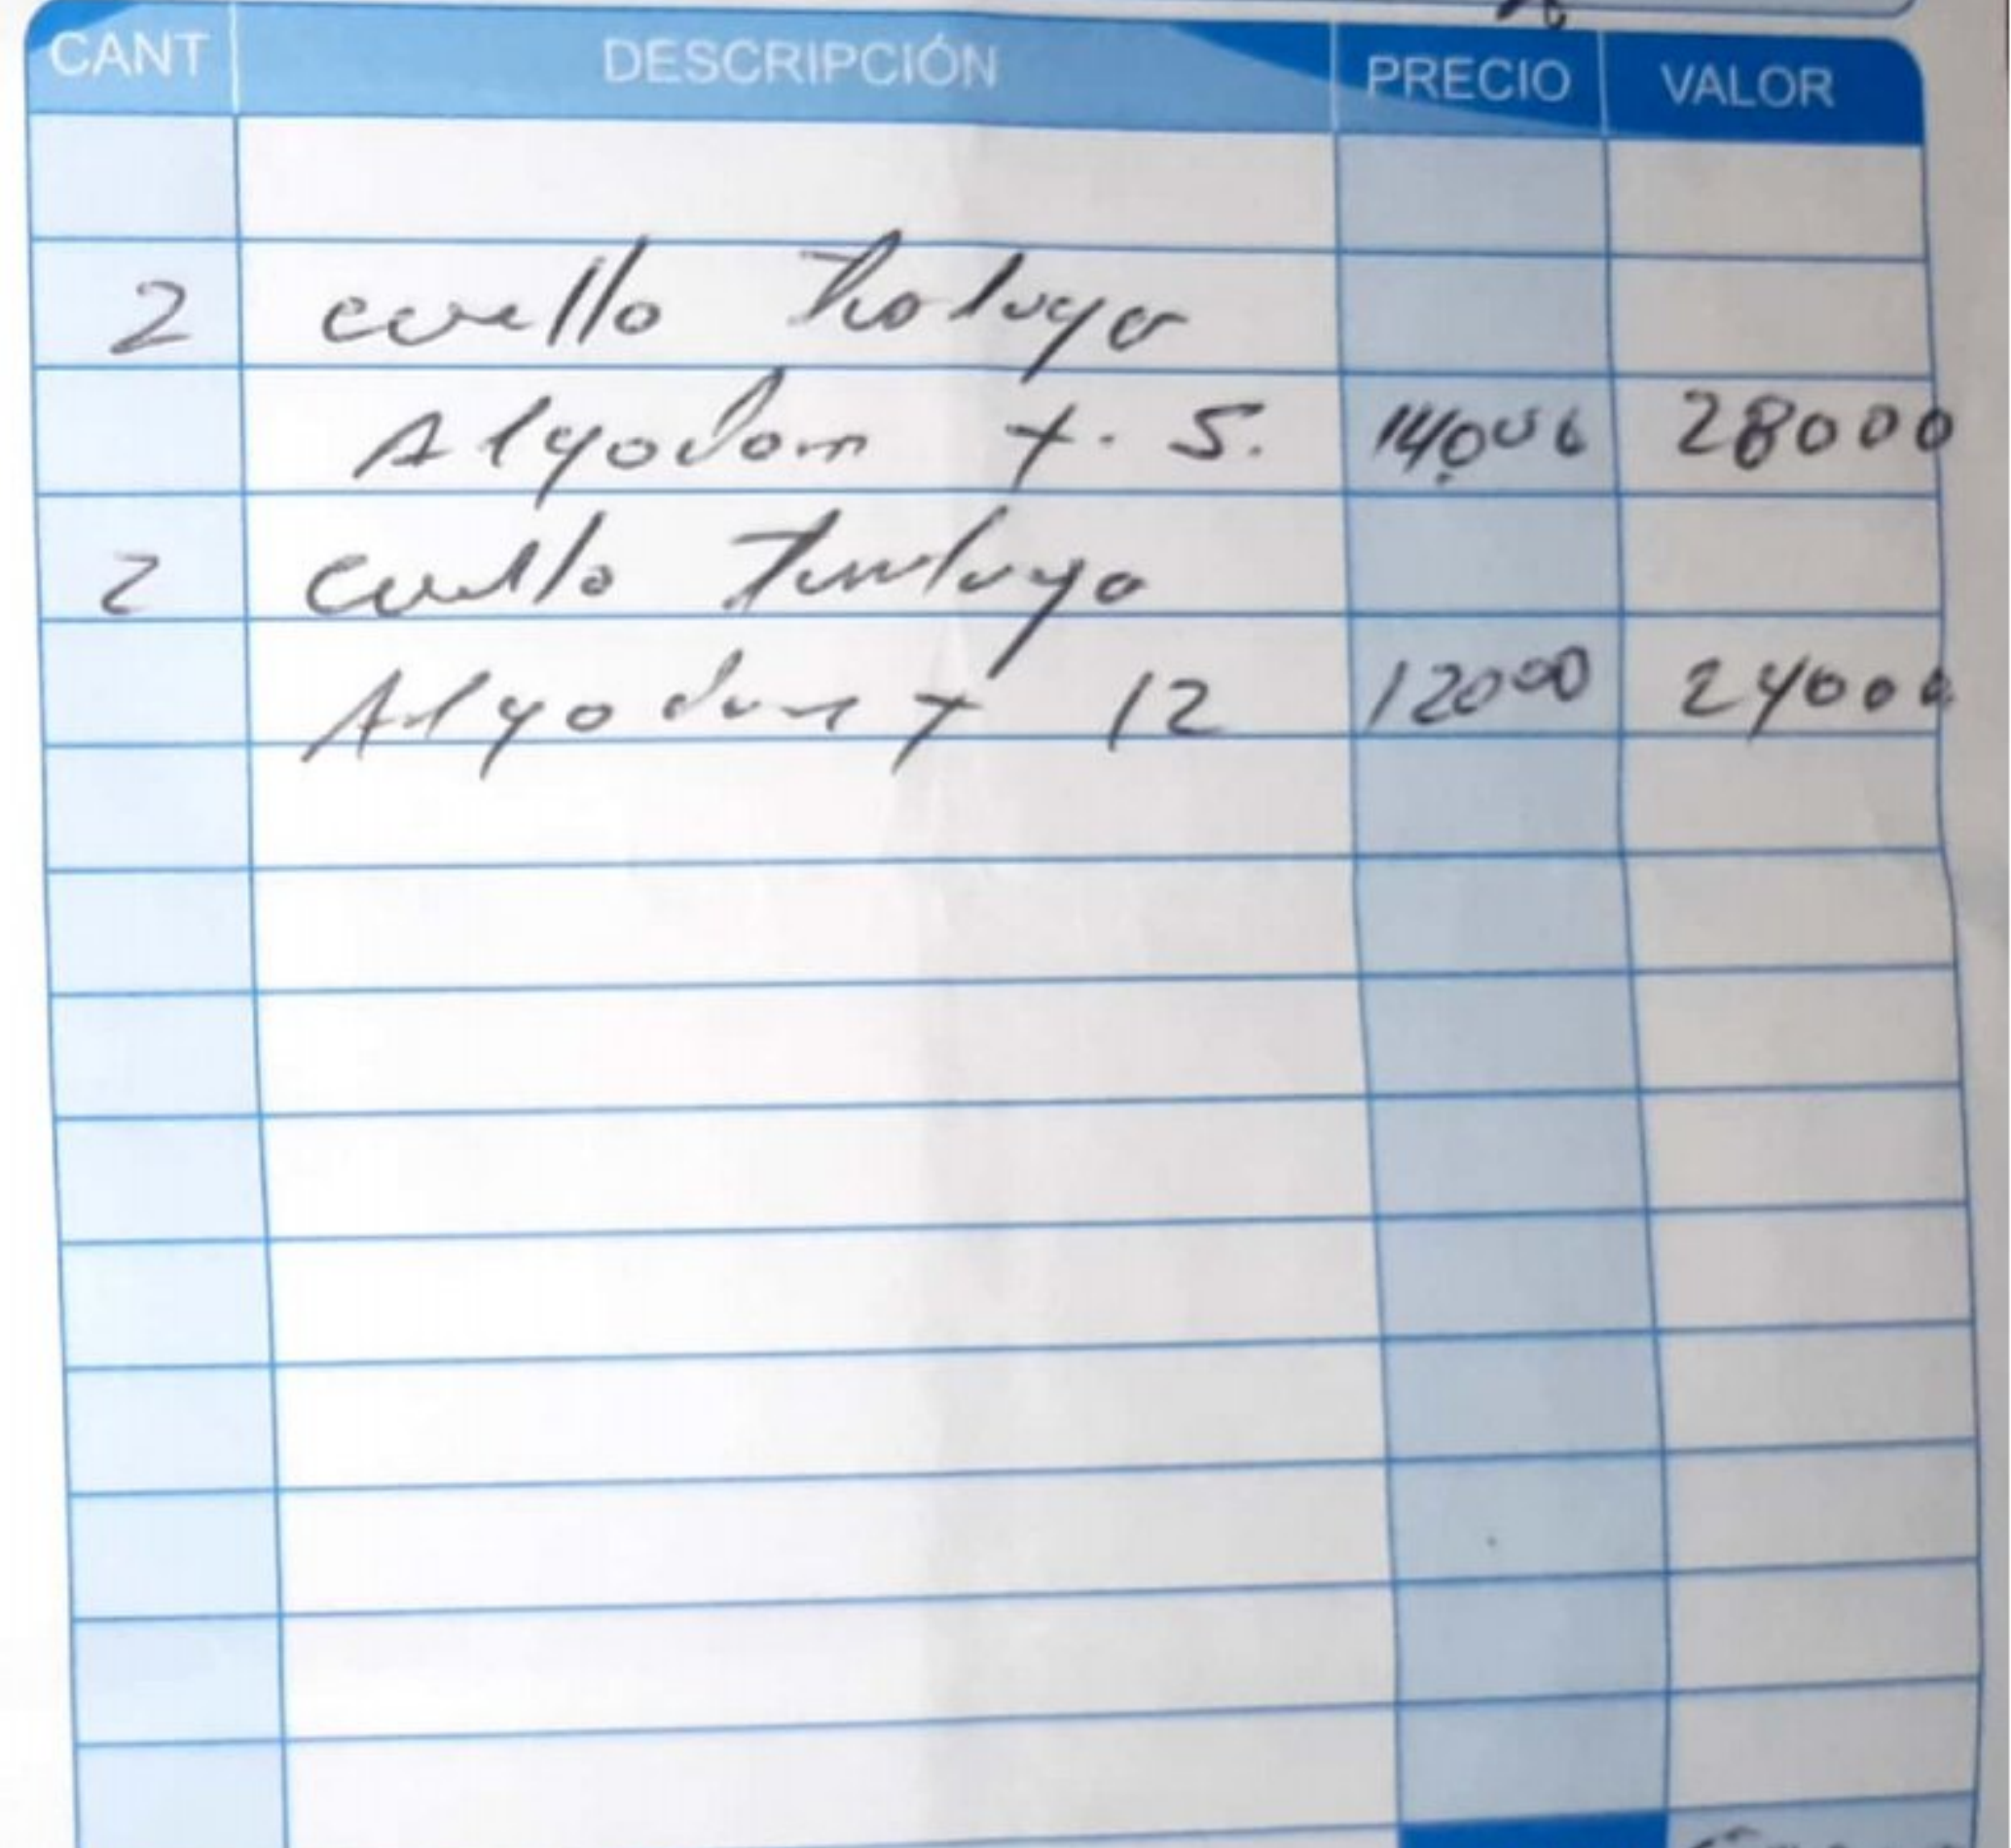 CANT DESCRIPCIÓN PRECIO VALOR
2 cuello
Algodon x. S. 14000 28000
2 cuello
Algodon x 12 12000 24000